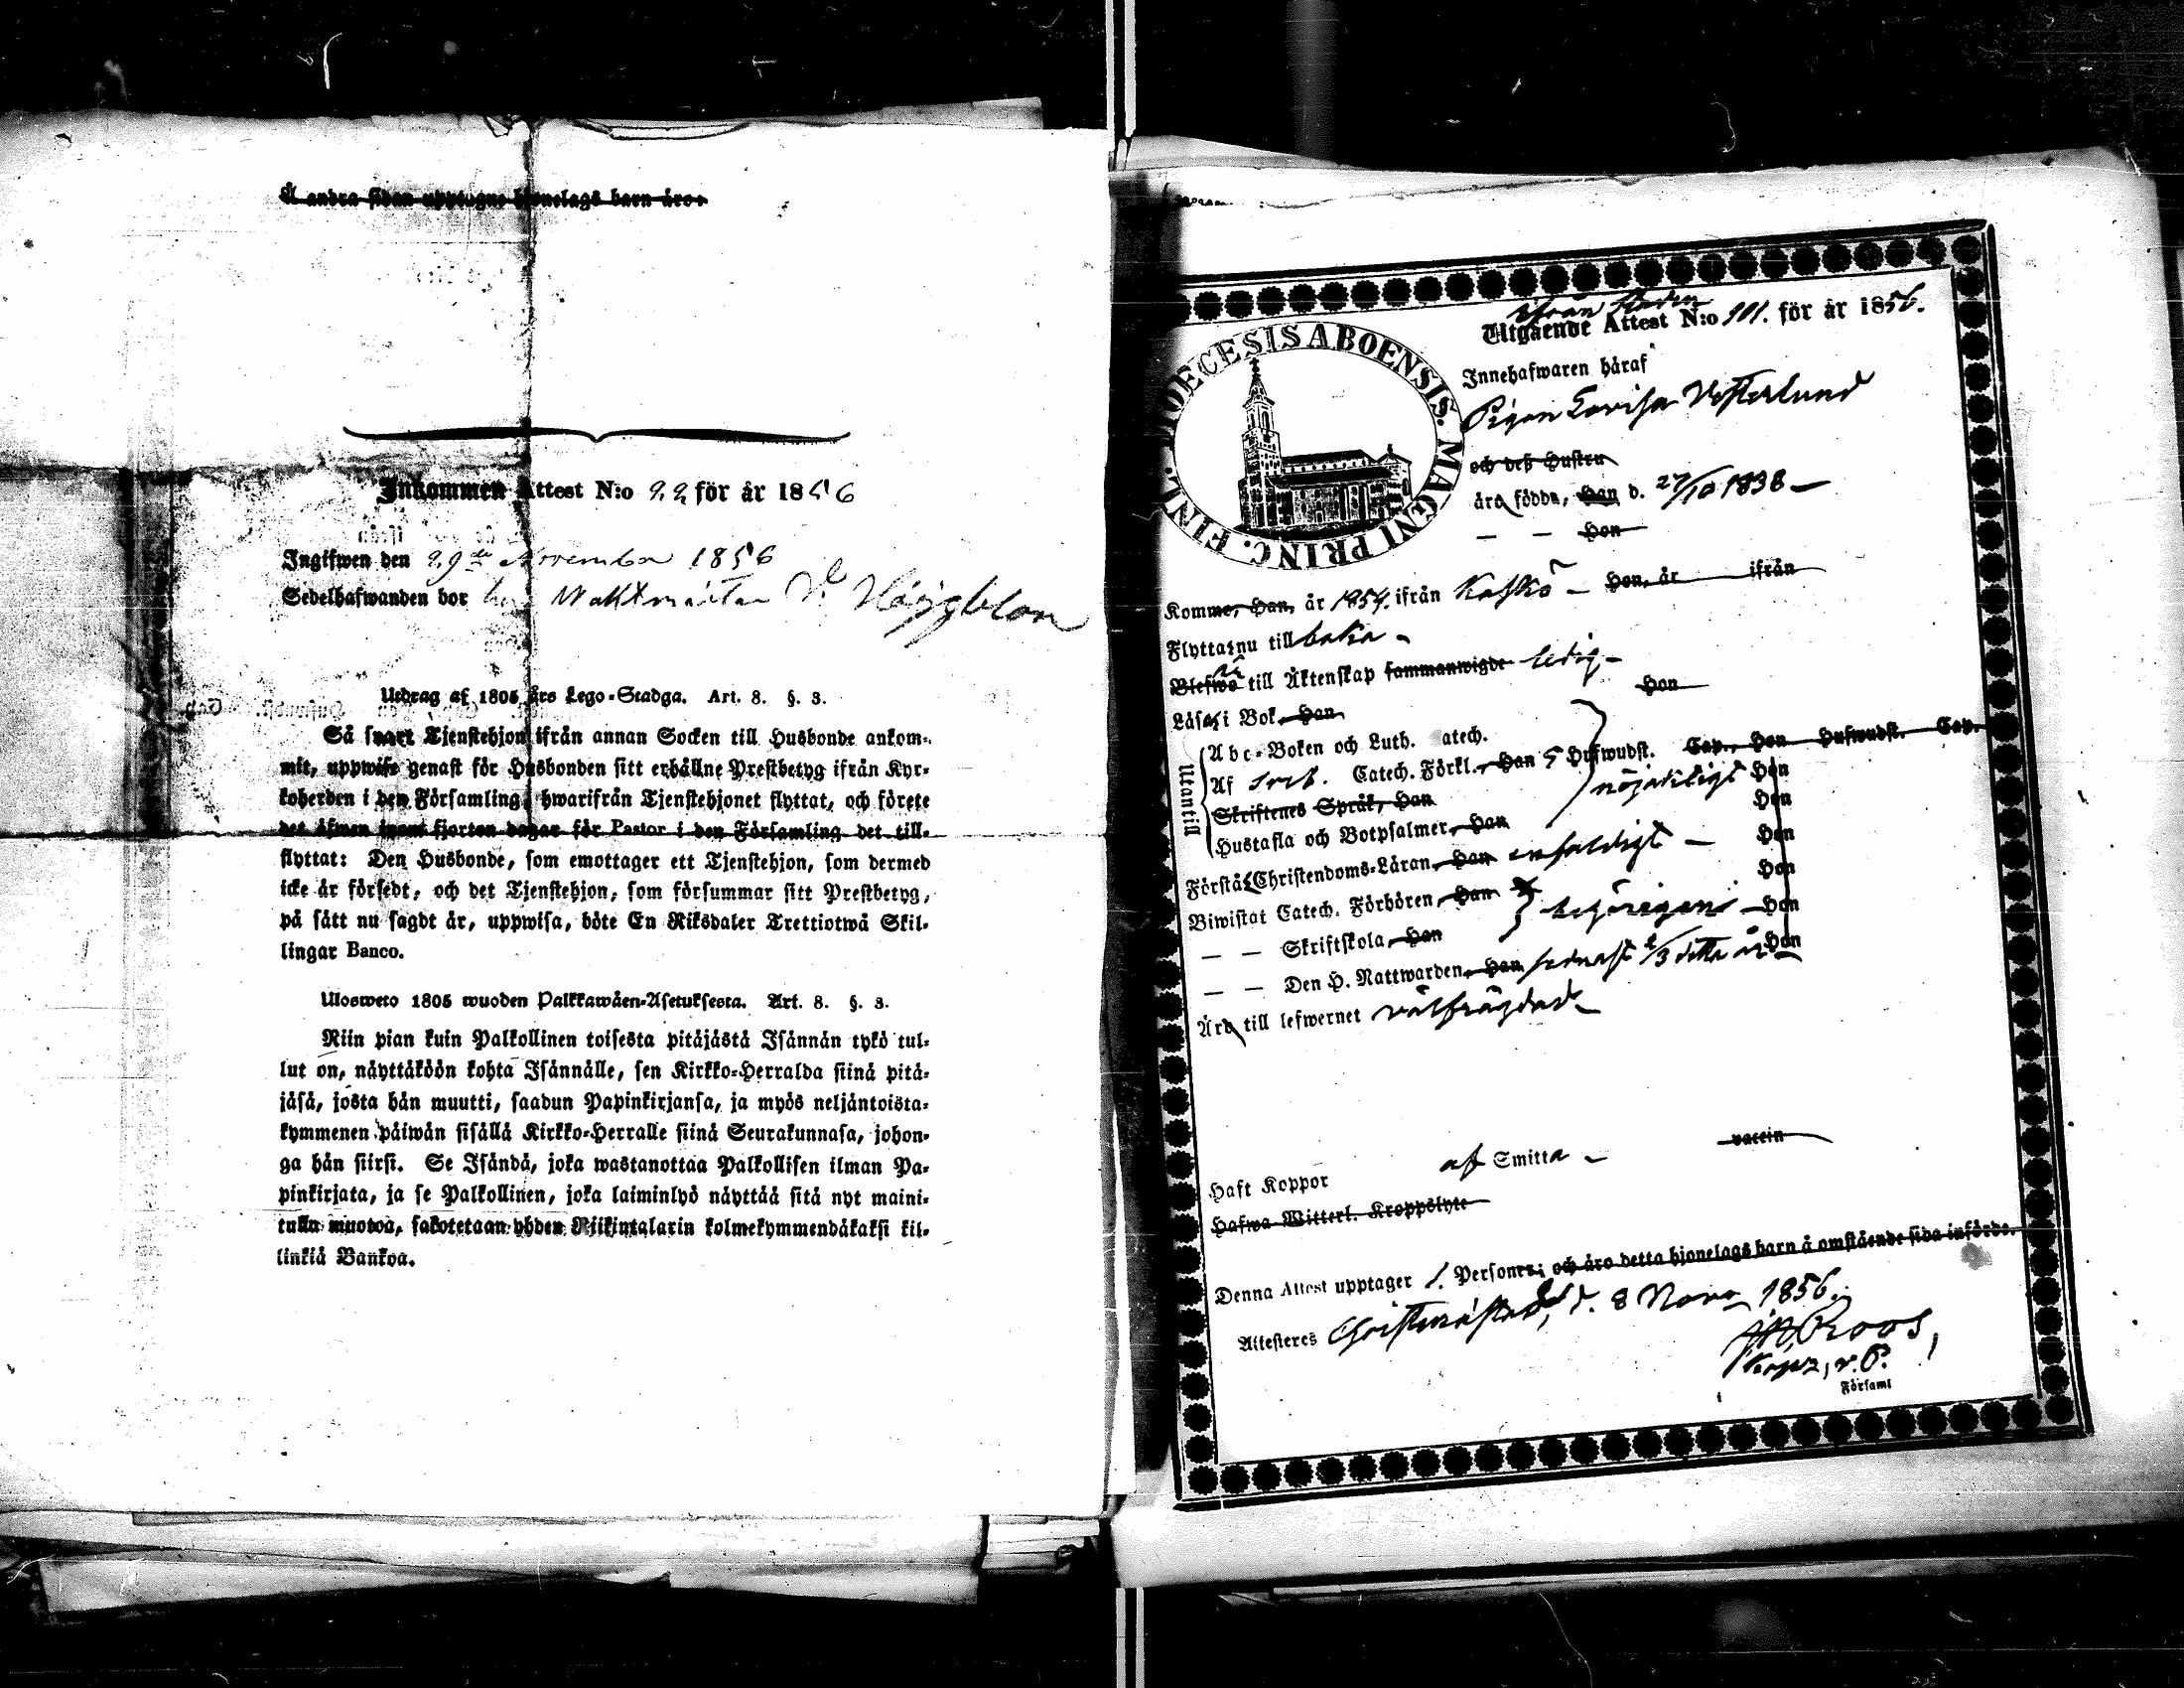 Å andra sidan upptagne hjonelags barn äro:
Inkommen Attest N:o 22 för år 1856
Ingifwen den 29de November 1856
Sedelhafwanden bor hos Waktmästar Häggblom
Utdrag af 1805 års Lego-Stadga. Art. 8. §. 3.
Så snart Tjenstehjon ifrån annan Socken till Husbonde ankom-
mit, uppwise genast för Husbonden sitt erhållne Prestbetyg ifrån Kyr-
koherden i den Församling, hwarifrån Tjenstehjonet flyttat, och förete
det äfwen inom fjorton dagar för Pastor i den Församling det till-
flyttat: Den Husbonde, som emottager ett Tjenstehjon, som dermed
icke är försedt, och det Tjenstehjon, som försummar sitt Prestbetyg,
på sätt nu sagdt är, uppwisa, böte En Riksdaler Trettiotwå Skil-
lingar Banco.
Ulosweto 1805 wuoden Palkkawäen-Asetuksesta. Art. 8. §. 3.
Niin pian kuin Palkollinen toisesta pitäjästä Isännän tykö tul-
lut on, näyttäköön kohta Isännälle, sen Kirkko-Herralda siinä pitä-
jäsä, josta hän muutti, saadun Papinkirjansa, ja myös neljäntoista-
kymmenen päiwän sisällä Kirkko-Herralle siinä Seurakunnasa, johon-
ga hän siirsi. Se Isändä, joka wastanottaa Palkollisen ilman Pa-
pinkirjata, ja se Palkollinen, joka laiminlyö näyttää sitä nyt maini-
tulla muotoa, sakotetaan yhden Riikintalarin kolmekymmendäkaksi kil-
linkiä Bankoa.
DIOECESIS ABOENSIS. MAGNI PRINC. FINL.
ifrån Staden
Utgående Attest N:o 101. för år 1856.
Innehafwaren häraf
Pigan Lovisa Vesterlund
och deß Hustru
äro födda, Han d. 27/10 1838 —
— — Hon
Komme, Han, år 1854. ifrån Kaskö — Hon, år ifrån
Flyttas nu till baka —
Blefwo till Äktenskap sammanwigde ledig —
Hon
Läsa i Bok, Han
Utantill
Abc-Boken och Luth. Catech.
Af Catech. Förkl., Han 5 Hufwudst. Cap., Hon Hufwudst. Cap.
Skriftenes Språk, Han nöjaktligt Hon
Hustafla och Botpsalmer, Han Hon
Förstå Christendoms-Läran, Han enfaldigt — Hon
Biwistat Catech. Förhören, Han Hon
— — Skriftskola, Han behörigens Hon
— — Den H. Nattwarden, Han senast 2/3 detta år Hon
Äro till lefwernet välfrägdad —
Haft Koppor af Smitta — vaccin
Hafwa Witterl. Kroppslyte
Denna Attest upptager 1. Personer; och äro detta hjonelags barn å omstående sida införde.
Attesteres Christinæstad, d. 8 Nov. 1856.
Roos,
v. P.
Församl